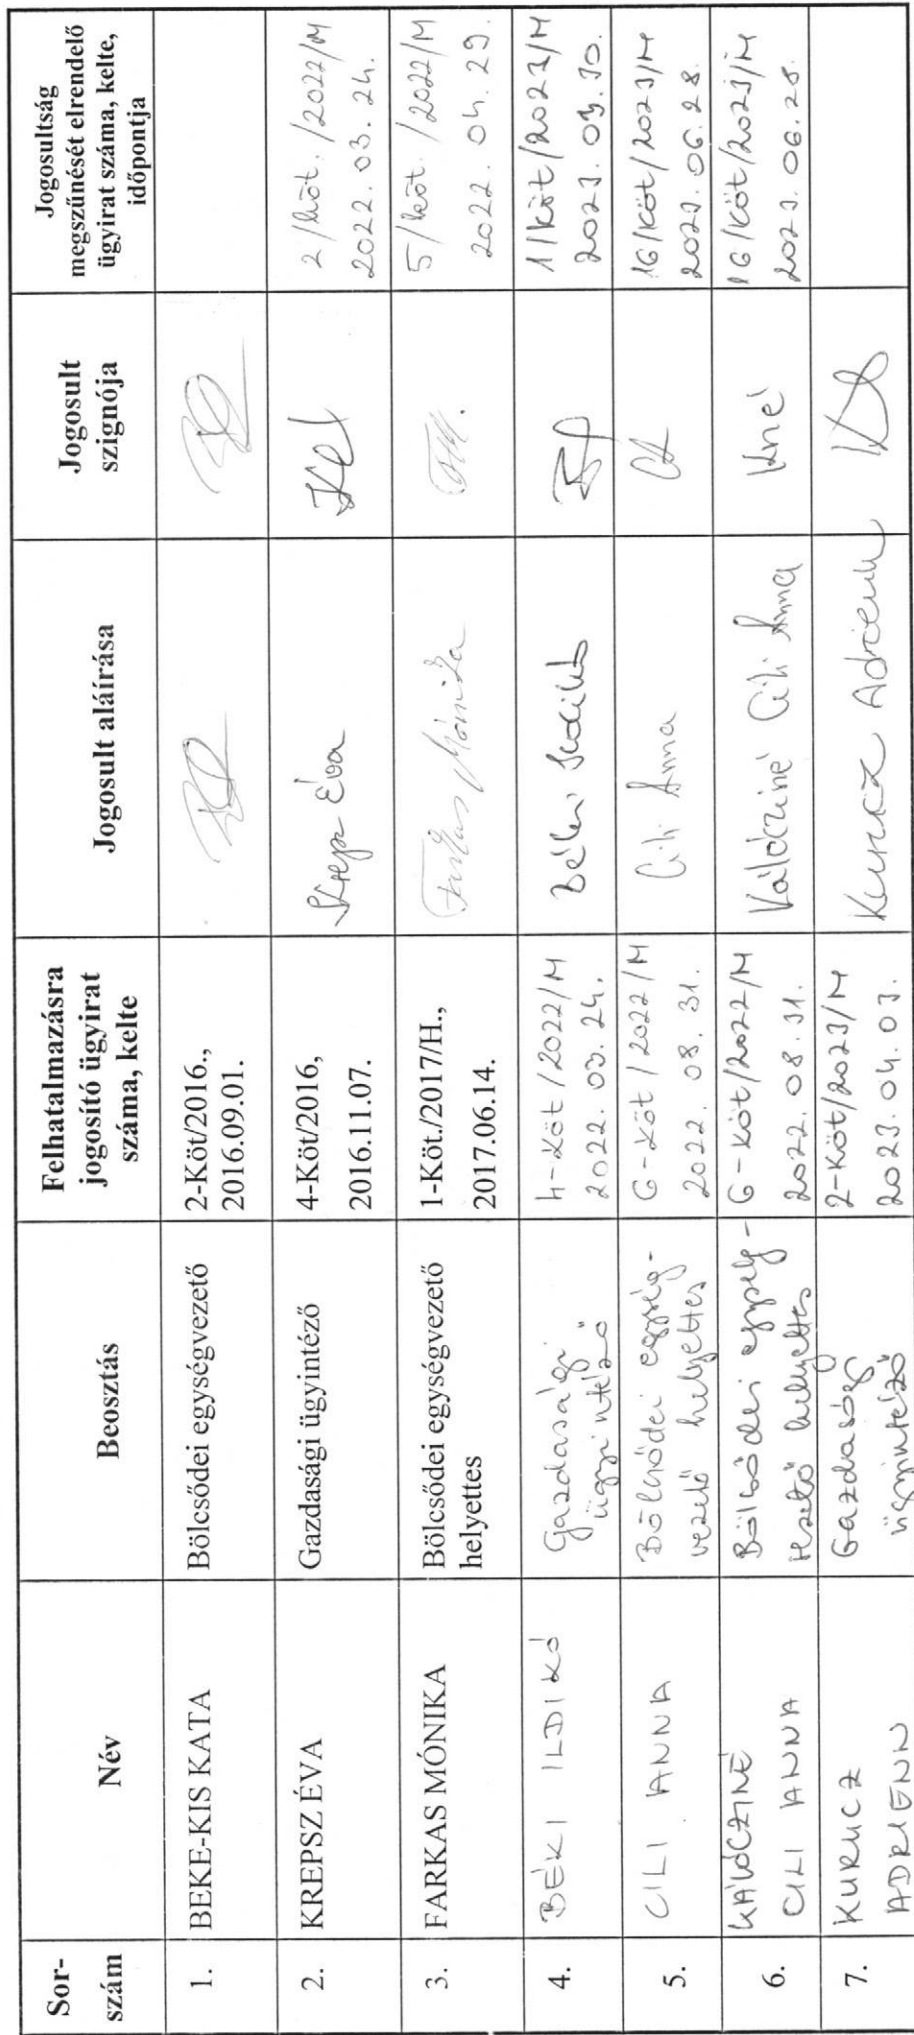 Sor-
szám
Név
Beosztás
Felhatalmazásra
jogosító ügyirat
száma, kelte
Jogosult aláírása
Jogosult
szignója
Jogosultság
megszűnését elrendelő
ügyirat száma, kelte,
időpontja
1.
BEKE-KIS KATA
Bölcsődei egységvezető
2-Köt/2016.,
2016.09.01.
2.
KREPSZ ÉVA
Gazdasági ügyintéző
4-Köt/2016,
2016.11.07.
Krepsz Éva
2/köt./2022/M
2022. 03. 24.
3.
FARKAS MÓNIKA
Bölcsődei egységvezető
helyettes
1-Köt./2017/H.,
2017.06.14.
Farkas Mónika
FM.
5/köt./2022/M
2022. 04. 29.
4.
BÉKI ILDIKÓ
Gazdasági
ügyintéző
4-Köt/2022/M
2022. 03. 24.
Béki Ildikó
1/Köt/2023/M
2023. 03. 30.
5.
CILI ANNA
Bölcsődei egység-
vezető helyettes
6-Köt/2022/M
2022. 08. 31.
Cili Anna
16/Köt/2023/M
2023. 06. 28.
6.
KÁLÓCZINÉ
CILI ANNA
Bölcsődei egység-
vezető helyettes
6-Köt/2022/M
2022. 08. 31.
Kálócziné Cili Anna
Kné
16/Köt/2023/M
2023. 06. 28.
7.
KURUCZ
ADRIENN
Gazdasági
ügyintéző
2-Köt/2023/M
2023. 04. 03.
Kurucz Adrienn